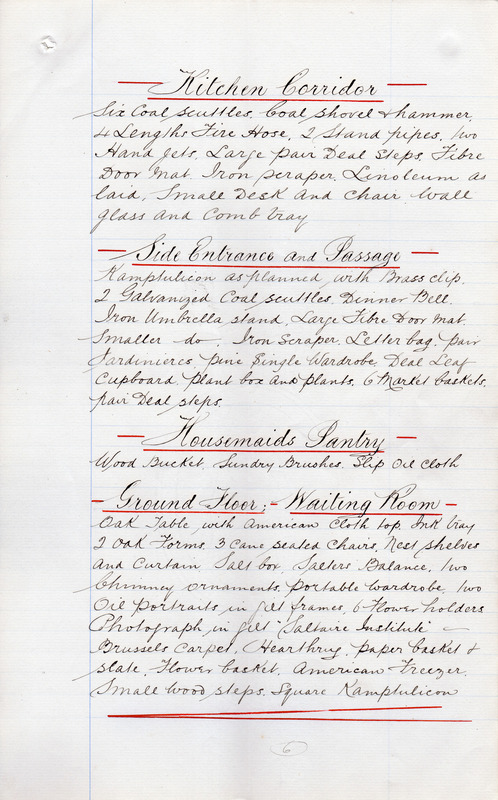 — Kitchen Corridor —
Six Coal scuttles, Coal shovel & hammer,
4 Lengths Fire Hose, 2 Stand pipes, two
Hand Jets, Large pair Deal Steps, Fibre
Door Mat. Iron scraper, Linoleum as
laid, Small Desk and Chair Wall
glass and Comb tray
— Side Entrance and Passage —
Kamptulicon as planned with Brass clip.
2 Galvanized Coal scuttles. Dinner Bell.
Iron Umbrella stand, Large Fibre Door Mat.
Smaller do, Iron Scraper. Letter bag. pair
Jardinieres pine Single Wardrobe, Deal Leaf
Cupboard. plant box and plants. 6 Market baskets,
pair Deal steps.
— Housemaids Pantry —
Wood Bucket. Sundry Brushes. Slip Oil Cloth
- Ground Floor; - Waiting Room -
Oak Table with American Cloth top. Ink tray
2 Oak Forms. 3 Cane seated Chairs, Nest shelves
and Curtain. Salt box, Salters Balance, two
Chimney ornaments. portable wardrobe. two
Oil portraits in gilt frames, 6 Flower holders
Photograph in gilt "Saltaire Institute" -
Brussels Carpet, Hearthrug. paper basket &
slate. Flower basket. American Freezer.
Small wood steps. Square Kamptulicon
6